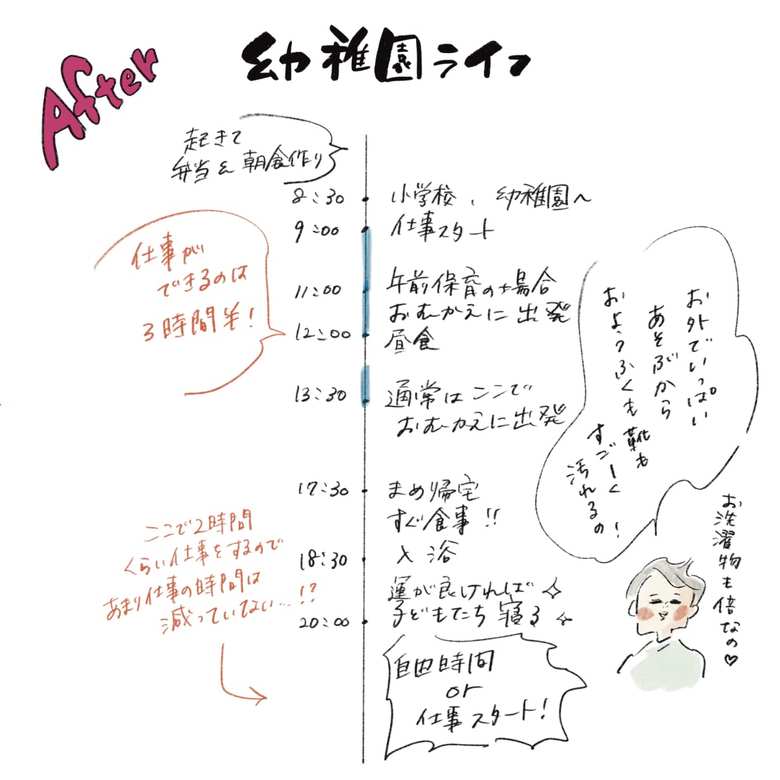 After
幼稚園ライフ
起きて
弁当&朝食作り
8:30 小学校、幼稚園へ
9:00 仕事スタート
仕事が
できるのは
3時間半!
11:00 午前保育の場合
おむかえに出発
12:00 昼食
13:30 通常はここで
おむかえに出発
お外でいっぱい
あそぶから
おようふくも靴も
すごーく
汚れるの!
17:30 まめ帰宅
すぐ食事!!
18:30 入浴
運が良ければ
20:00 子どもたち寝る
ここで2時間
くらい仕事をするので
あまり仕事の時間は
減っていない…!?
自由時間
or
仕事スタート!
お洗濯物も倍なの♡